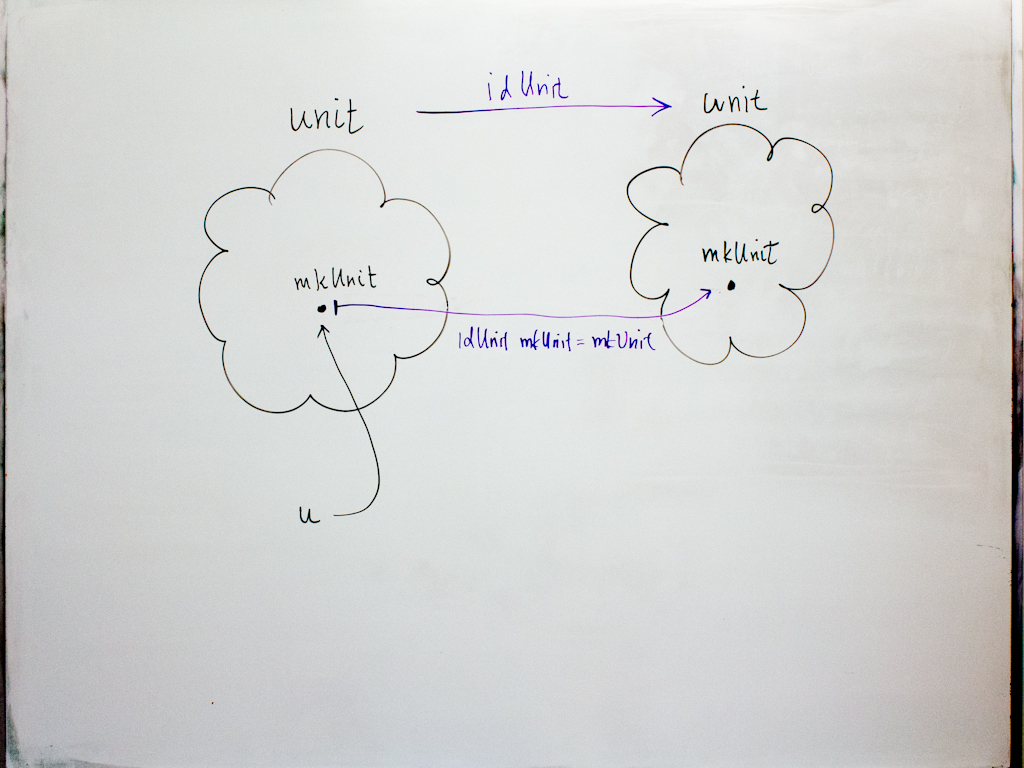 idUnit
unit
unit
mkUnit
mkUnit
idUnit mkUnit = mkUnit
u